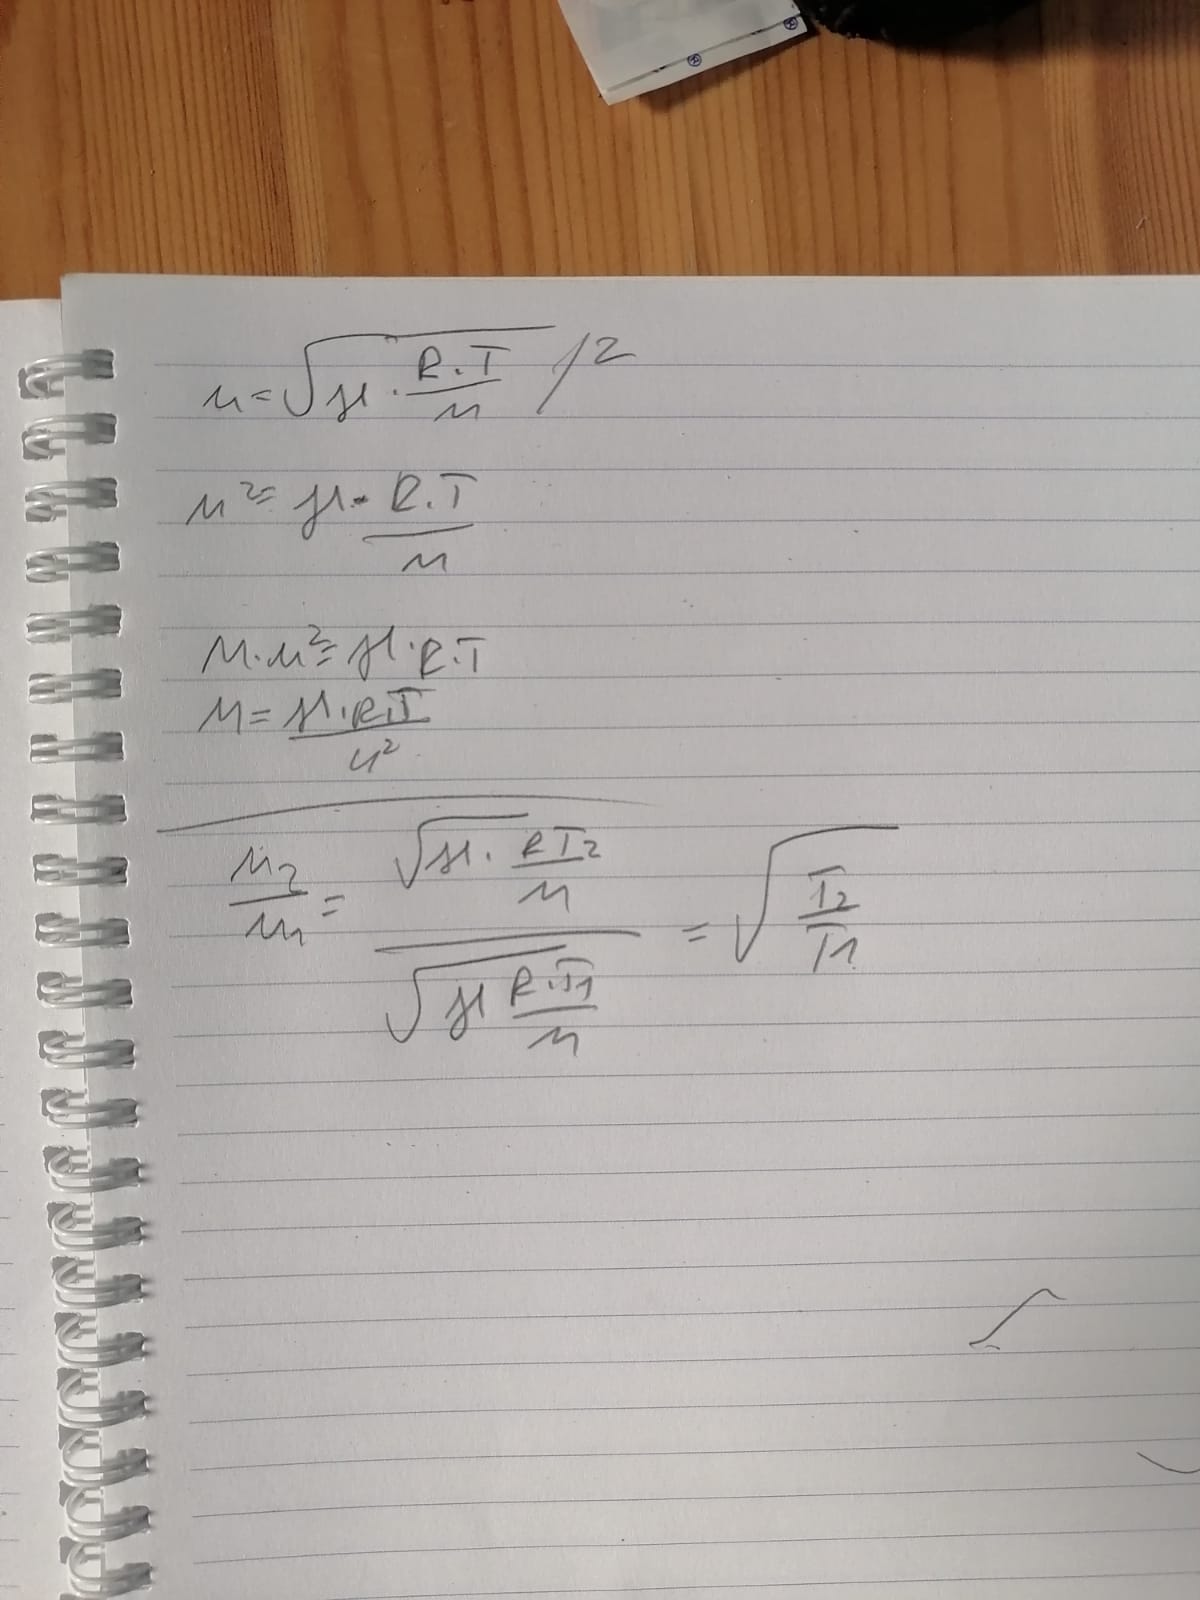 u = √(ϰ · R·T/M) /²
u² = ϰ · R·T/M
M·u² = ϰ·R·T
M = ϰ·R·T/u²
u₂/u₁ = √(ϰ · RT₂/M) / √(ϰ R·T₁/M) = √(T₂/T₁)